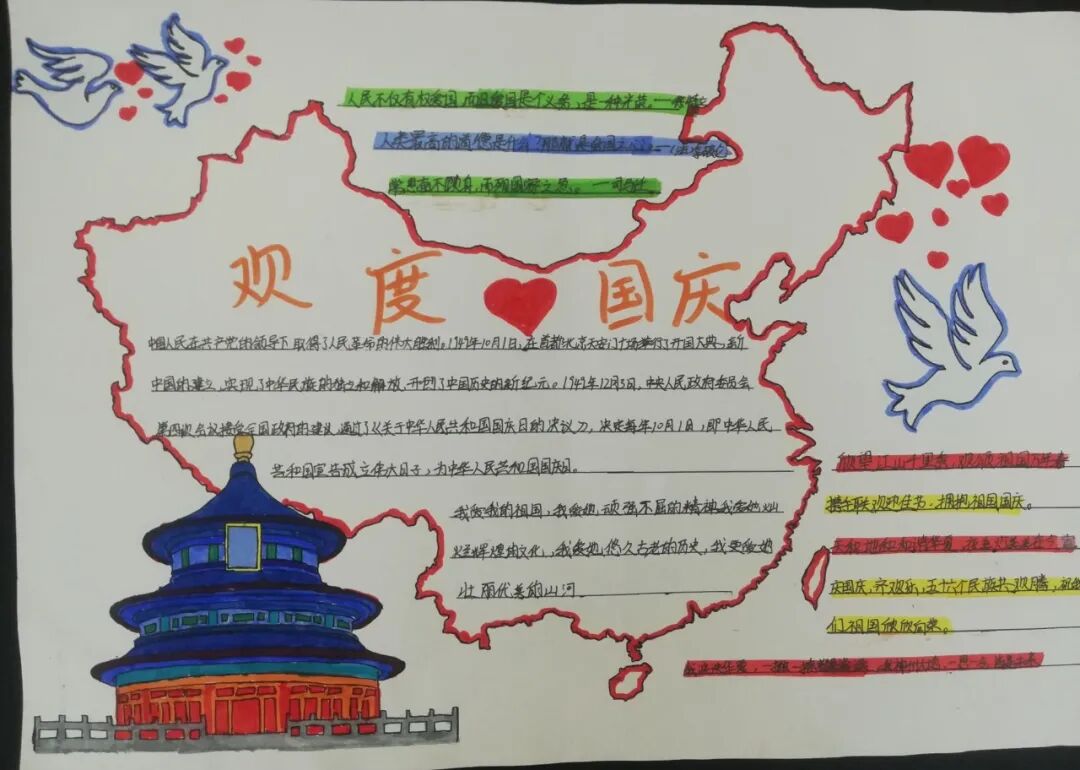 人民不仅有权爱国,而且爱国是个义务,是一种光荣。——
人类最高的道德是什么?那就是爱国之心。——
常思奋不顾身,而殉国家之急。——司马迁
欢度国庆
中国人民在共产党的领导下取得了人民革命的伟大胜利。1949年10月1日,在首都北京天安门广场举行了开国大典,新
中国的建立,实现了中华民族的独立和解放,开创了中国历史的新纪元。1949年12月3日,中央人民政府委员会
第四次会议接受全国政府的建议,通过了《关于中华人民共和国国庆日的决议》,决定每年10月1日,即中华人民
共和国宣告成立伟大日子,为中华人民共和国国庆日。
我爱我的祖国,我爱她顽强不屈的精神,我爱她灿
烂辉煌的文化,我爱她悠久古老的历史,我更爱她
壮丽优美的山河
欣望江山千里秀,欢颂祖国万年春
携手联欢迎佳节,拥抱祖国国庆。
庆国庆,齐欢乐,五十六个民族共欢腾,祝
们祖国欣欣向荣。